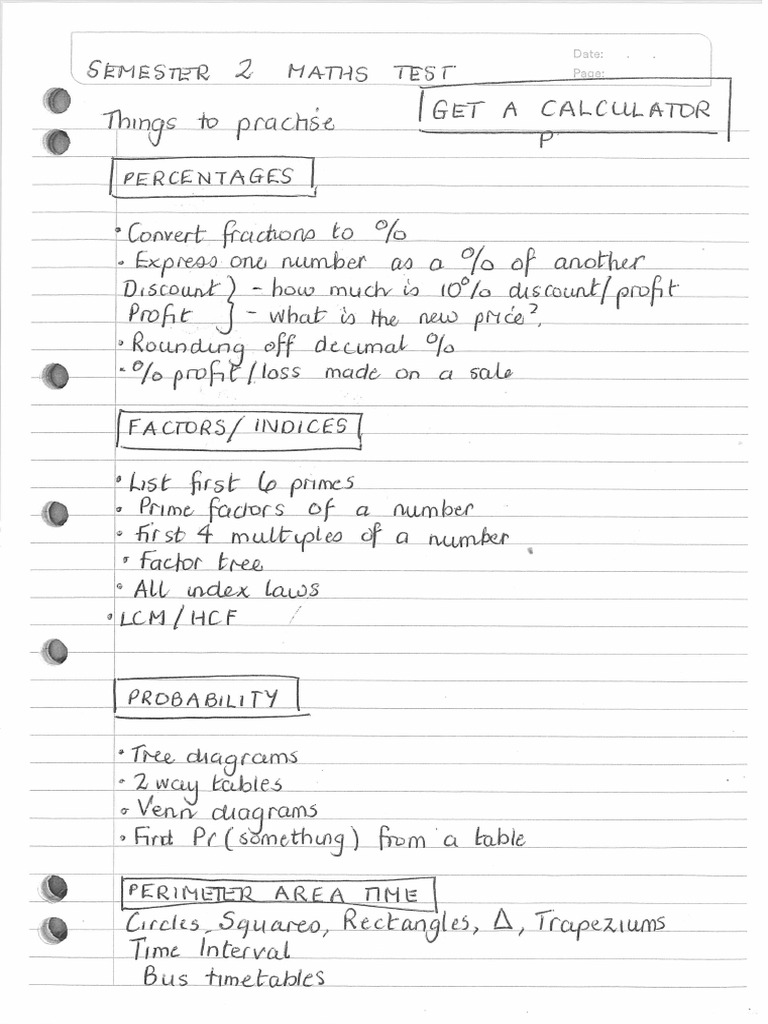 Date: . .
Page:
SEMESTER 2 MATHS TEST
GET A CALCULATOR
P
Things to practise
PERCENTAGES
• Convert fractions to %
• Express one number as a % of another
Discount } - how much is 10% discount/profit
Profit } - what is the new price?.
• Rounding off decimal %
• % profit/loss made on a sale
FACTORS/INDICES
• List first 6 primes
• Prime factors of a number
• First 4 multiples of a number
• Factor tree
• All index laws
• LCM/HCF
PROBABILITY
• Tree diagrams
• 2 way tables
• Venn diagrams
• Find Pr(something) from a table
PERIMETER AREA TIME
Circles, Squares, Rectangles, Δ, Trapeziums
Time Interval
Bus timetables